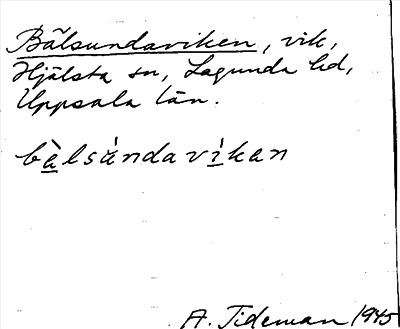 Bålsundaviken, vik,
Hjälsta sn, Lagunda hd,
Uppsala län.
bå̀lsúndavi̇̀kan
A. Tideman 1945